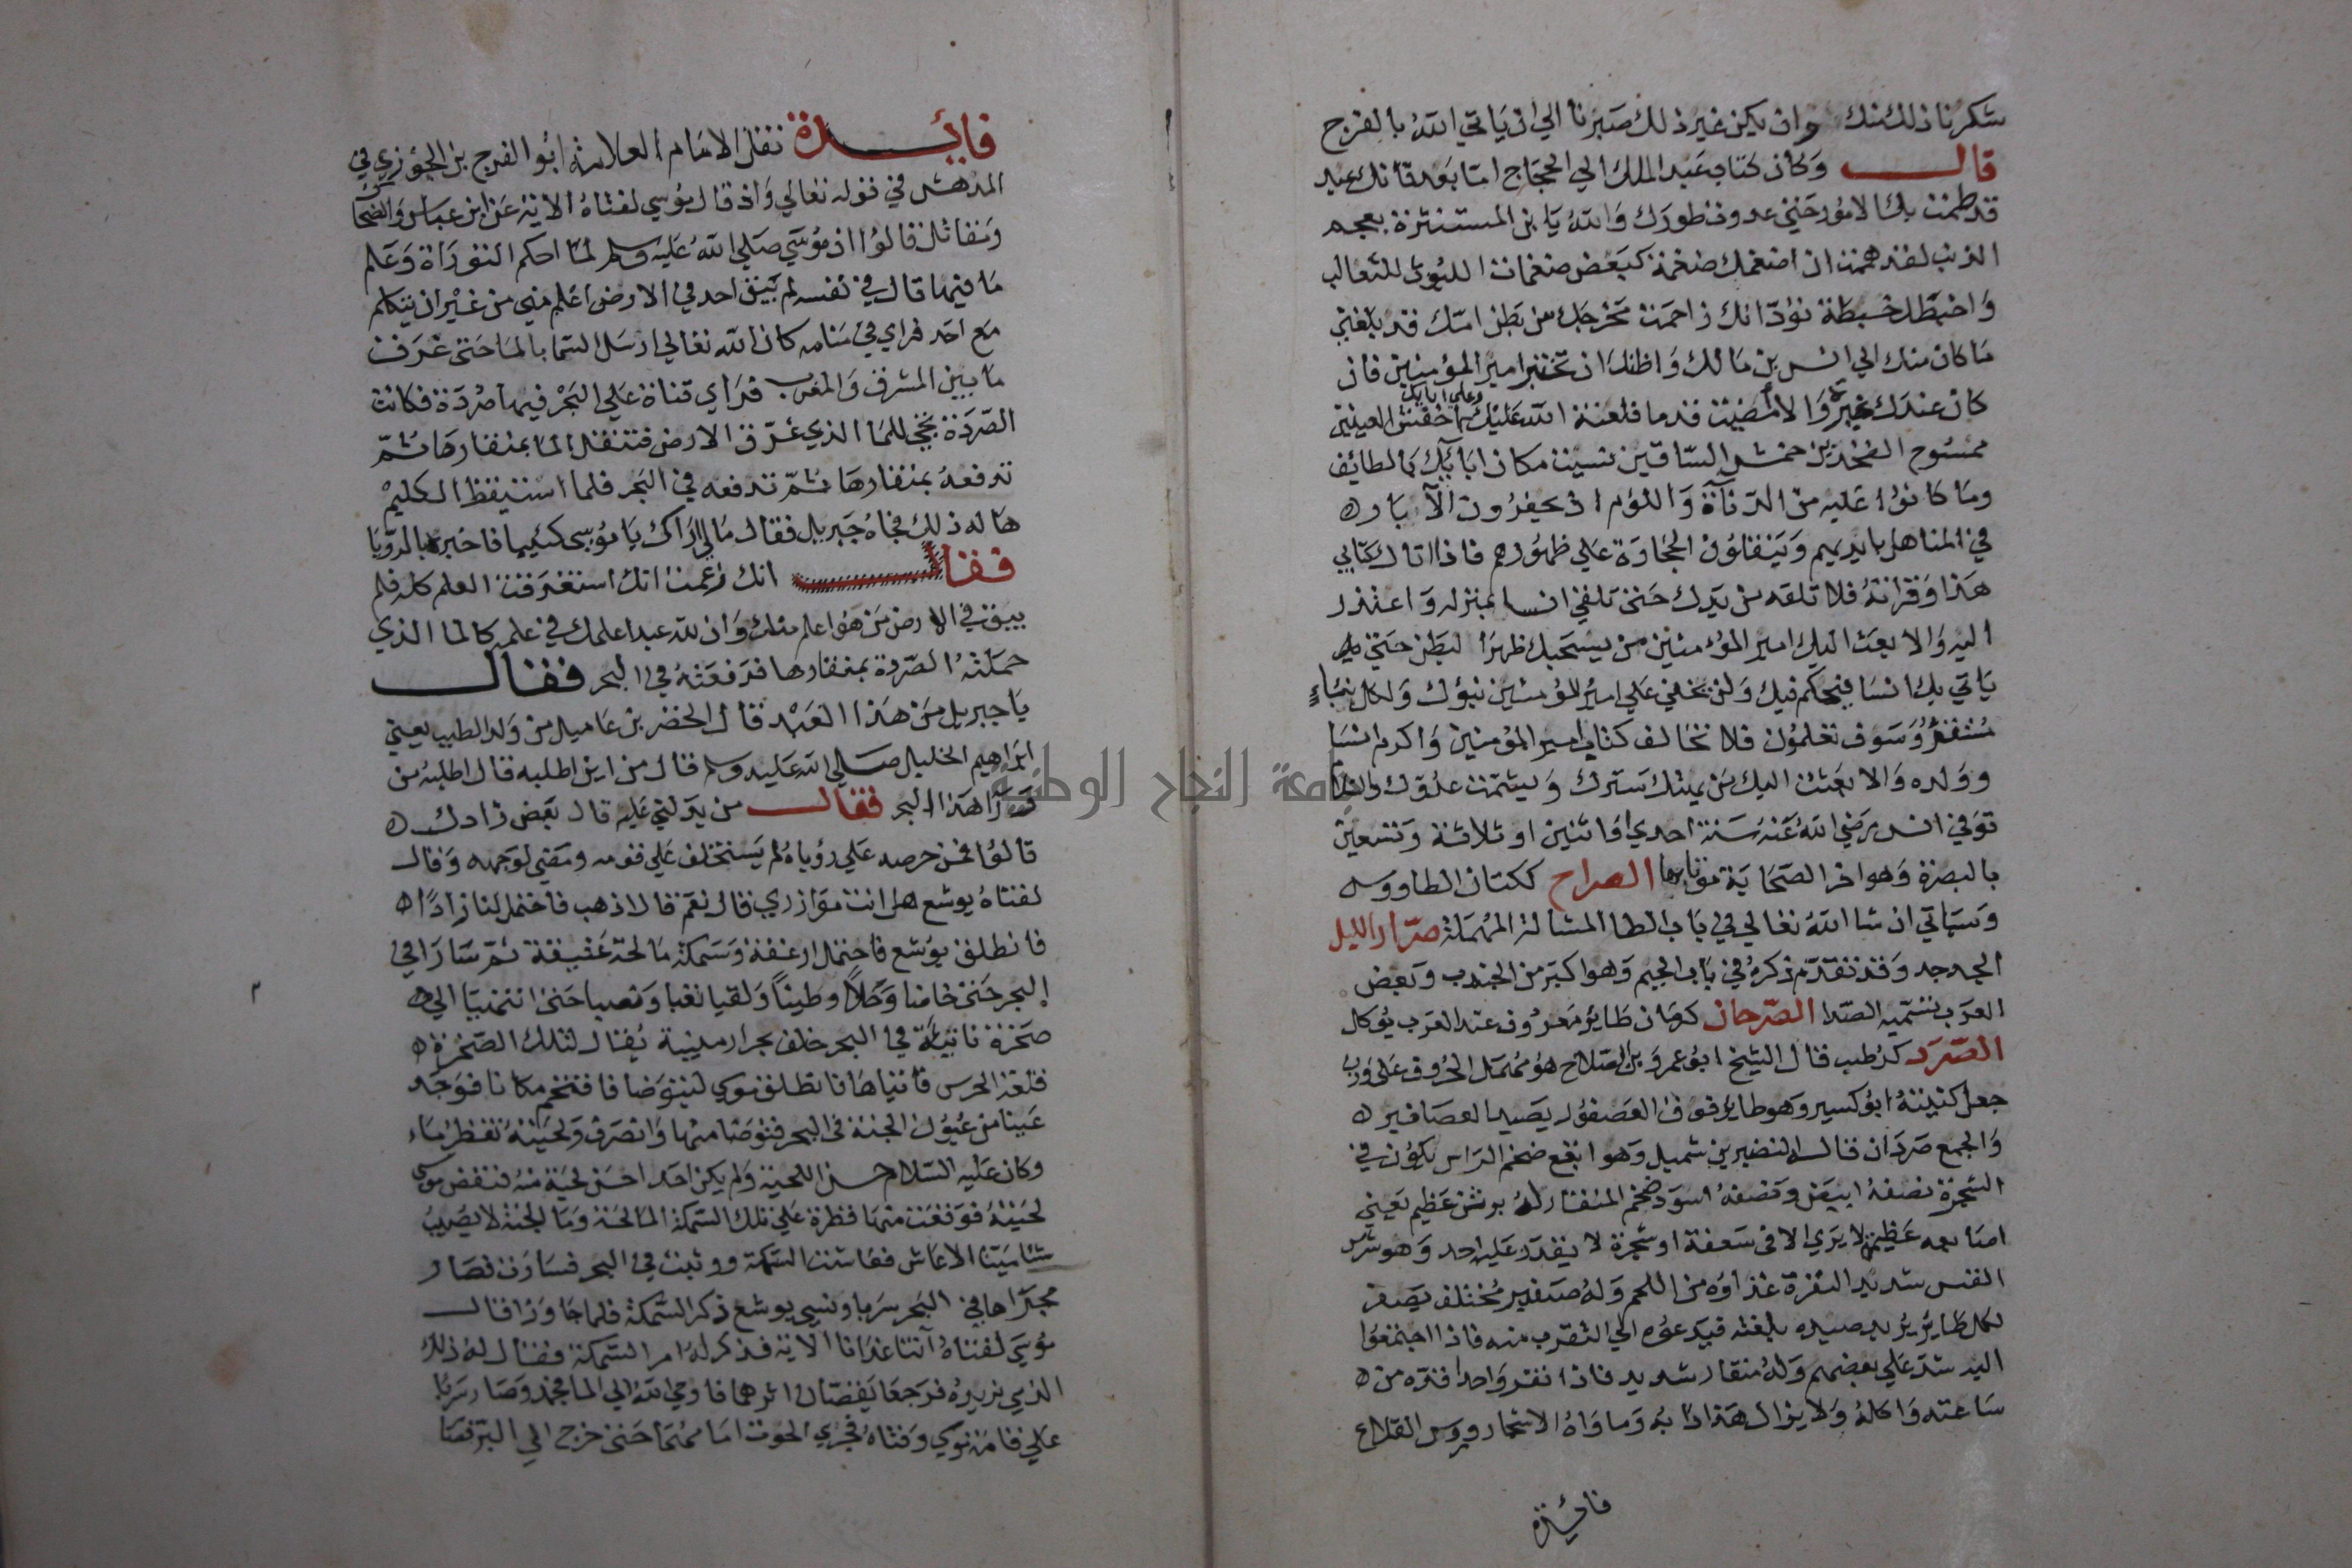 شكرنا ذلك منك وان يكن غير ذلك صبرنا الي ان ياتي الله بالفرج
قال وكان كتاب عبد الملك الي الحجاج اما بعد فانك عبد
قد طمت بك الامور حتي عدوت طورك والله يا بن المستفرمة بعجم
الزبيب لقد هممت ان اضغمك ضغمة كبعض ضغمات الليوث للثعالب
واخبطك خبطة تود انك زاحمت مخرجك من بطن امك قد بلغني
ما كان منك الي انس بن مالك واظنك ان تختبر امير المؤمنين فان
كان عندك غيرة والا امضيت قدما فلعنة الله عليك وعلي ابايك اخفش العينين
ممسوح الفخذين حمش الساقين نسيت مكان ابائك بالطائف
وما كانوا عليه من الدناة واللؤم اذ يحفرون الآبار
في المناهل بايديهم وينقلون الحجارة علي ظهورهم فاذا اتاك كتابي
هذا وقراته فلا تلقه من يدك حتي تلقي انسا بمنزله واعتذر
اليه والا بعث اليك امير المؤمنين من يسحبك ظهرا لبطن حتي
ياتي بك انسا فيحكم فيك ولن يخفي علي امير المؤمنين نبوك ولكل نباء
مستقر وسوف تعلمون فلا تخالف كتاب امير المؤمنين واكرم انسا
وولده والا بعثت اليك من يهتك سترك ويشمت عدوك والسلام
توفي انس رضي الله عنه سنة احدي او اثنين او ثلاثة وتسعين
بالبصرة وهو اخر الصحابة موتا بها الصراح ككتان الطاووس
وسياتي ان شا الله تعالي في باب الطا المشالة المهملة صرار الليل
الجدجد وقد تقدم ذكره في باب الجيم وهو اكبر من الجندب وبعض
العرب تسميه الصدا الصرحان كرمان طاير معروف عند العرب يوكل
الصرد كرطب قال الشيخ ابو عمرو بن الصلاح هو مهمل الحروف علي وزن
جعل كنيته ابو كسير وهو طاير فوق العصفور يصيد العصافير
والجمع صردان قال النضير بن شميل وهو ابقع ضخم الراس يكون في
الشجرة نصفه ابيض ونصفه اسود ضخم المنقار له برثن عظيم يعني
اصابعه عظيمة لا يري الا في سعفة او شجرة لا يقدر عليه احد وهو شرس
النفس شديد النفرة غذاوه من اللحم وله صفير مختلف يصفر
لكل طائر يريد صيده بلغته فيدعوه الي التقرب منه فاذا اجتمعوا
اليه شد علي بعضهم وله منقار شديد فاذا نقر واحدا قده من
ساعته واكله ولا يزال هذا دابه وماواه الاشجار وروس القلاع
فائدة
فائدة نقل الامام العلامة ابو الفرج بن الجوزي في
المدهش في قوله تعالي واذ قال موسي لفتاه الاية عن ابن عباس والضحاك
ومقاتل قالوا ان موسي صلي الله عليه وسلم لما احكم التوراة وعلم
ما فيها قال في نفسه لم يبق احد في الارض اعلم مني من غير ان يتكلم
مع احد فراي في منامه كان الله تعالي ارسل السما بالما حتي غرق
ما بين المشرق والمغرب فراي قناة علي البحر فيها صردة فكانت
الصردة تجي للما الذي غرق الارض فتنقل الما بمنقارها ثم
ترفعه بمنقارها ثم تدفعه في البحر فلما استيقظ الكليم
هاله ذلك فجاه جبريل فقال مالي اراك يا موسي كئيبا فاخبره بالرويا
فقال انك زعمت انك استغرقت العلم كله فلم
يبق في الارض من هو اعلم منك وان لله عبدا علمك في علمه كالما الذي
حملته الصردة بمنقارها فدفعته في البحر فقال
يا جبريل من هذا العبد قال الخضر بن عاميل من ولد الطيب يعني
ابراهيم الخليل صلي الله عليه وسلم قال من اين اطلبه قال اطلبه من
ورا هذا البحر فقال من يدلني عليه قال بعض زادك
قالوا فمن حرصه علي رؤياه لم يستخلف علي قومه ومضي لوجهه وقال
لفتاه يوشع هل انت موازري قال نعم قال اذهب فاحتمل لنا زادا
فانطلق يوشع فاحتمل ارغفة وسمكة مالحة عتيقة ثم سارا في
البحر حتي خاضا وحلا وطينا ولقيا تعبا ونصبا حتي انتهيا الي
صخرة ناتية في البحر خلف بحر ارمينية يقال لتلك الصخرة
قلعة الحرس فاتياها فانطلق موسي ليتوضا فاقتحم مكانا فوجد
عينا من عيون الجنة في البحر فتوضا منها وانصرف ولحيته تقطر ماء
وكان عليه السلام حسن اللحية ولم يكن احد احسن لحية منه فنفض موسي
لحيته فوقعت منها قطرة علي تلك السمكة المالحة وما الجنة لا يصيب
شيا ميتا الا عاش فعاشت السمكة ووثبت في البحر فسارت فصار
مجراها في البحر سربا ونسي يوشع ذكر السمكة فلما جاوزا قال
موسي لفتاه آتنا غدانا الاية فذكر له امر السمكة فقال له ذلك
الذي نريده فرجعا يقصان اثرهما فاوحي الله الي الما فجمد وصار سربا
علي قامة موسي وفتاه فجري الحوت امامهما حتي خرج الي البر فصا
جامعة النجاح الوطنية